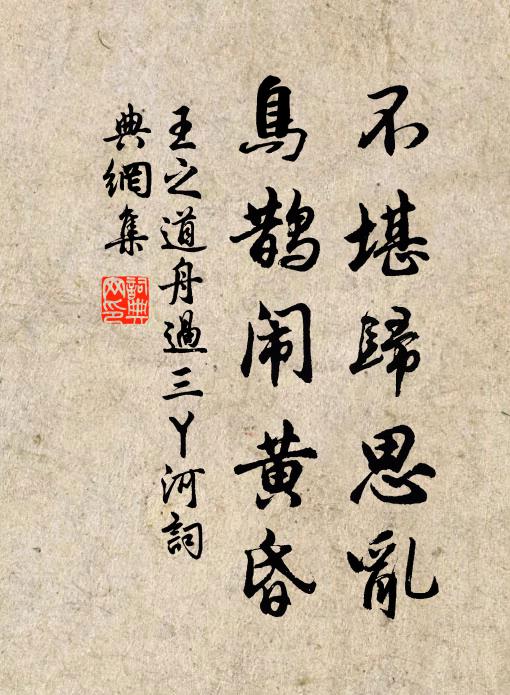 不堪歸思亂
鳥鹊闹黄昏
王之道舟過三丫河詞
典網集
詞典
网印